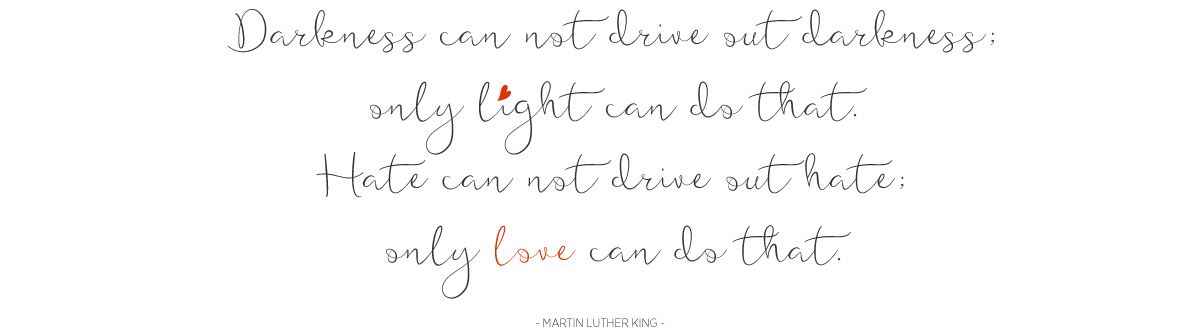 Darkness can not drive out darkness;
only light can do that.
Hate can not drive out hate;
only love can do that.
- MARTIN LUTHER KING -